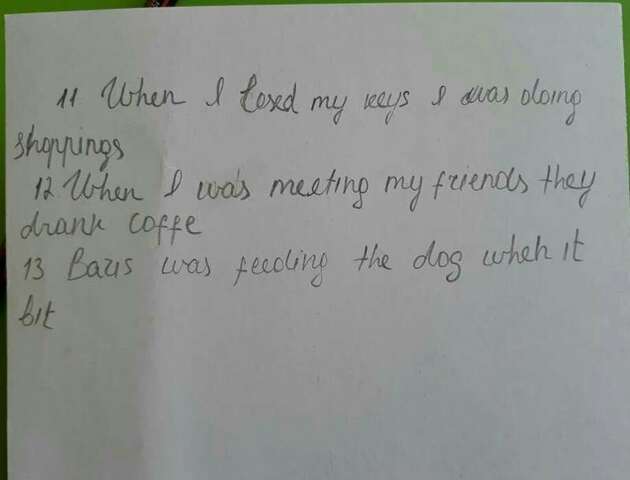 11 When I losed my keys I was doing
shoppings
12. When I was meeting my friends they
drank coffe
13 Baris was feeding the dog when it
bit